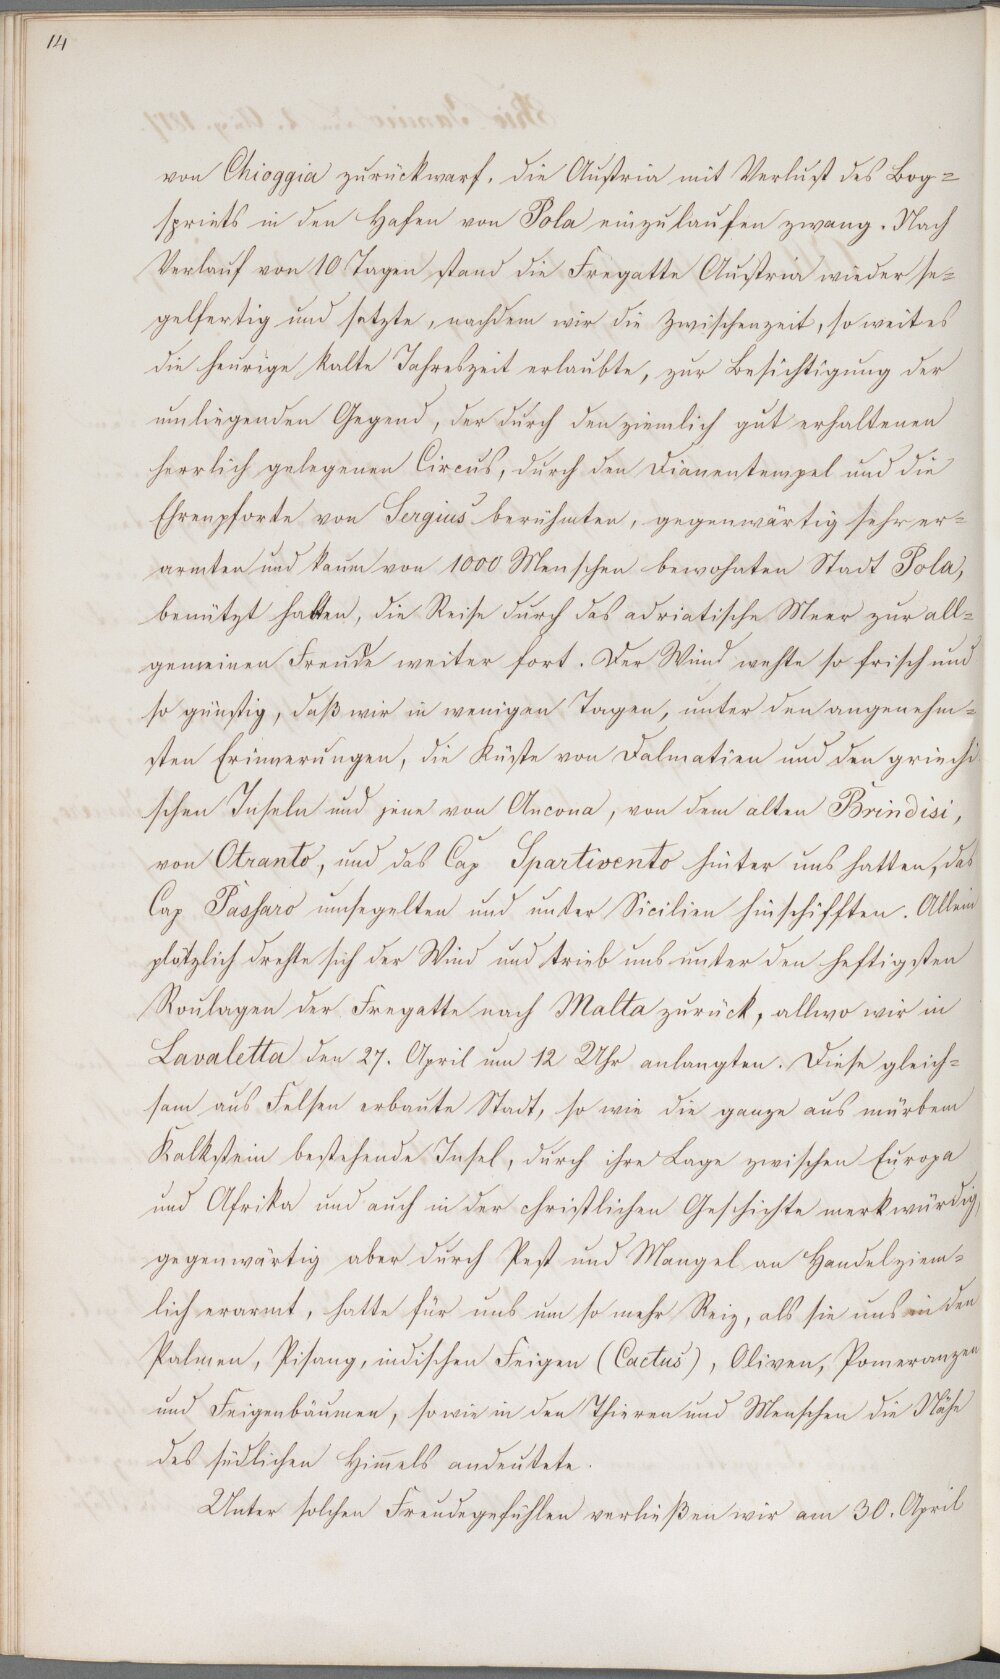 14
von Chioggia zurückwarf, die Austria mit Verlust des Bog=
spriets in den Hafen von Pola einzulaufen zwang. Nach
Verlauf von 10 Tagen stand die Fregatte Austria wieder se=
gelfertig und setzte, nachdem wir die Zwischenzeit, so weit es
die heurige kalte Jahreszeit erlaubte, zur Besichtigung der
umliegenden Gegend, der durch den ziemlich gut erhaltenen
herrlich gelegenen Circus, durch den Dianentempel und die
Ehrenpforte von Sergius berühmten, gegenwärtig sehr er=
armten und kaum von 1000 Menschen bewohnten Stadt Pola,
benützt hatten, die Reise durch das adriatische Meer zur all=
gemeinen Freude weiter fort. Der Wind wehte so frisch und
so günstig, daß wir in wenigen Tagen, unter den angenehm=
sten Erinnerungen, die Küste von Dalmatien und den griechi
schen Inseln und jene von Ancona, von dem alten Brindisi,
von Otranto, und das Cap Spartivento hinter uns hatten, das
Cap Passaro umsegelten und unter Sicilien hinschifften. Allein
plötzlich drehte sich der Wind und trieb uns unter den heftigsten
Roulagen der Fregatte nach Malta zurück, allwo wir in
Lavaletta den 27. April um 12 Uhr anlangten. Diese gleich=
sam aus Felsen erbaute Stadt, so wie die ganze aus mürbem
Kalkstein bestehende Insel, durch ihre Lage zwischen Europa
und Afrika und auch in der christlichen Geschichte merkwürdig,
gegenwärtig aber durch Pest und Mangel an Handel ziem=
lich erarmt, hatte für uns um so mehr Reiz, als sie uns in den
Palmen, Pisang, indischen Feigen (Cactus), Oliven, Pomeranzen
und Feigenbäumen, so wie in den Thieren und Menschen die Nähe
des südlichen Him̄els andeutete.
Unter solchen Freudegefühlen verließen wir am 30. April